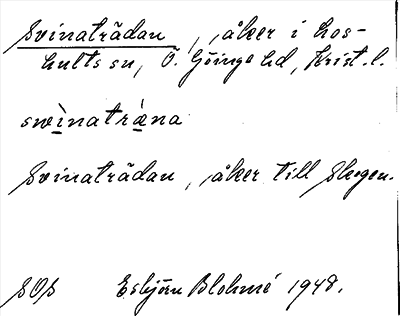 Svinaträdan, åker i Los-
hults sn, Ö. Göinge hd, Krist. l.
swìnatræ̀na
Svinaträdan, åker till Skogen.
SOS Esbjörn Blohmé 1948.